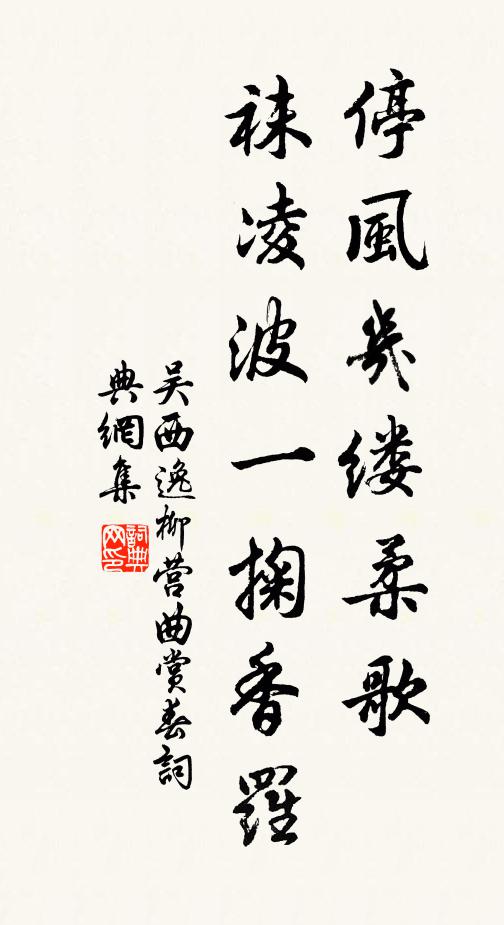 停風幾缕柔歌
袜凌波一掬香羅
吴西逸柳营曲赏春詞
典網集
詞典
网印